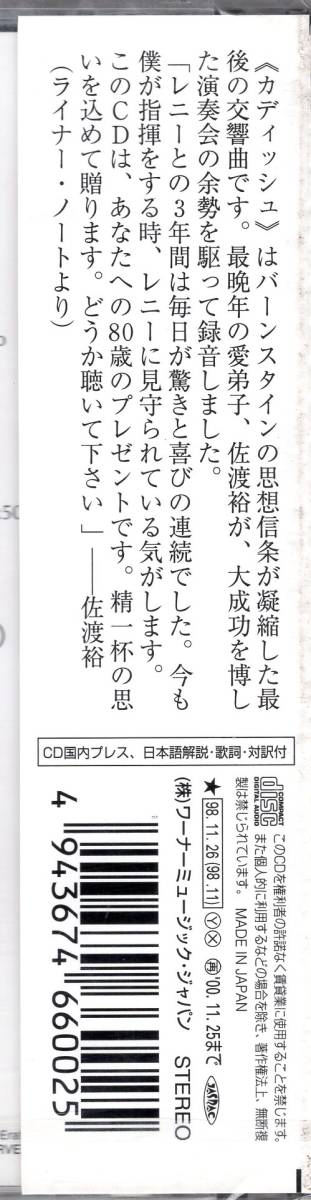 《カディッシュ》はバーンスタインの思想信条が凝縮した最
後の交響曲です。最晩年の愛弟子、佐渡裕が、大成功を博し
た演奏会の余勢を駆って録音しました。
「レニーとの3年間は毎日が驚きと喜びの連続でした。今も
僕が指揮をする時、レニーに見守られている気がします。
このCDは、あなたへの80歳のプレゼントです。精一杯の思
いを込めて贈ります。どうか聴いて下さい」──佐渡裕
（ライナー・ノートより）
CD国内プレス、日本語解説・歌詞・対訳付
COMPACT
disc
DIGITAL AUDIO
このCDを権利者の許諾なく賃貸業に使用することを禁じます。
また個人的に利用するなどの場合を除き、著作権法上、無断複
製は禁じられています。 MADE IN JAPAN
★ 98.11.26(98.11) Ⓨ Ⓧ ㊞'00.11.25まで JASRAC
(株)ワーナーミュージック・ジャパン STEREO
4 943674 660025